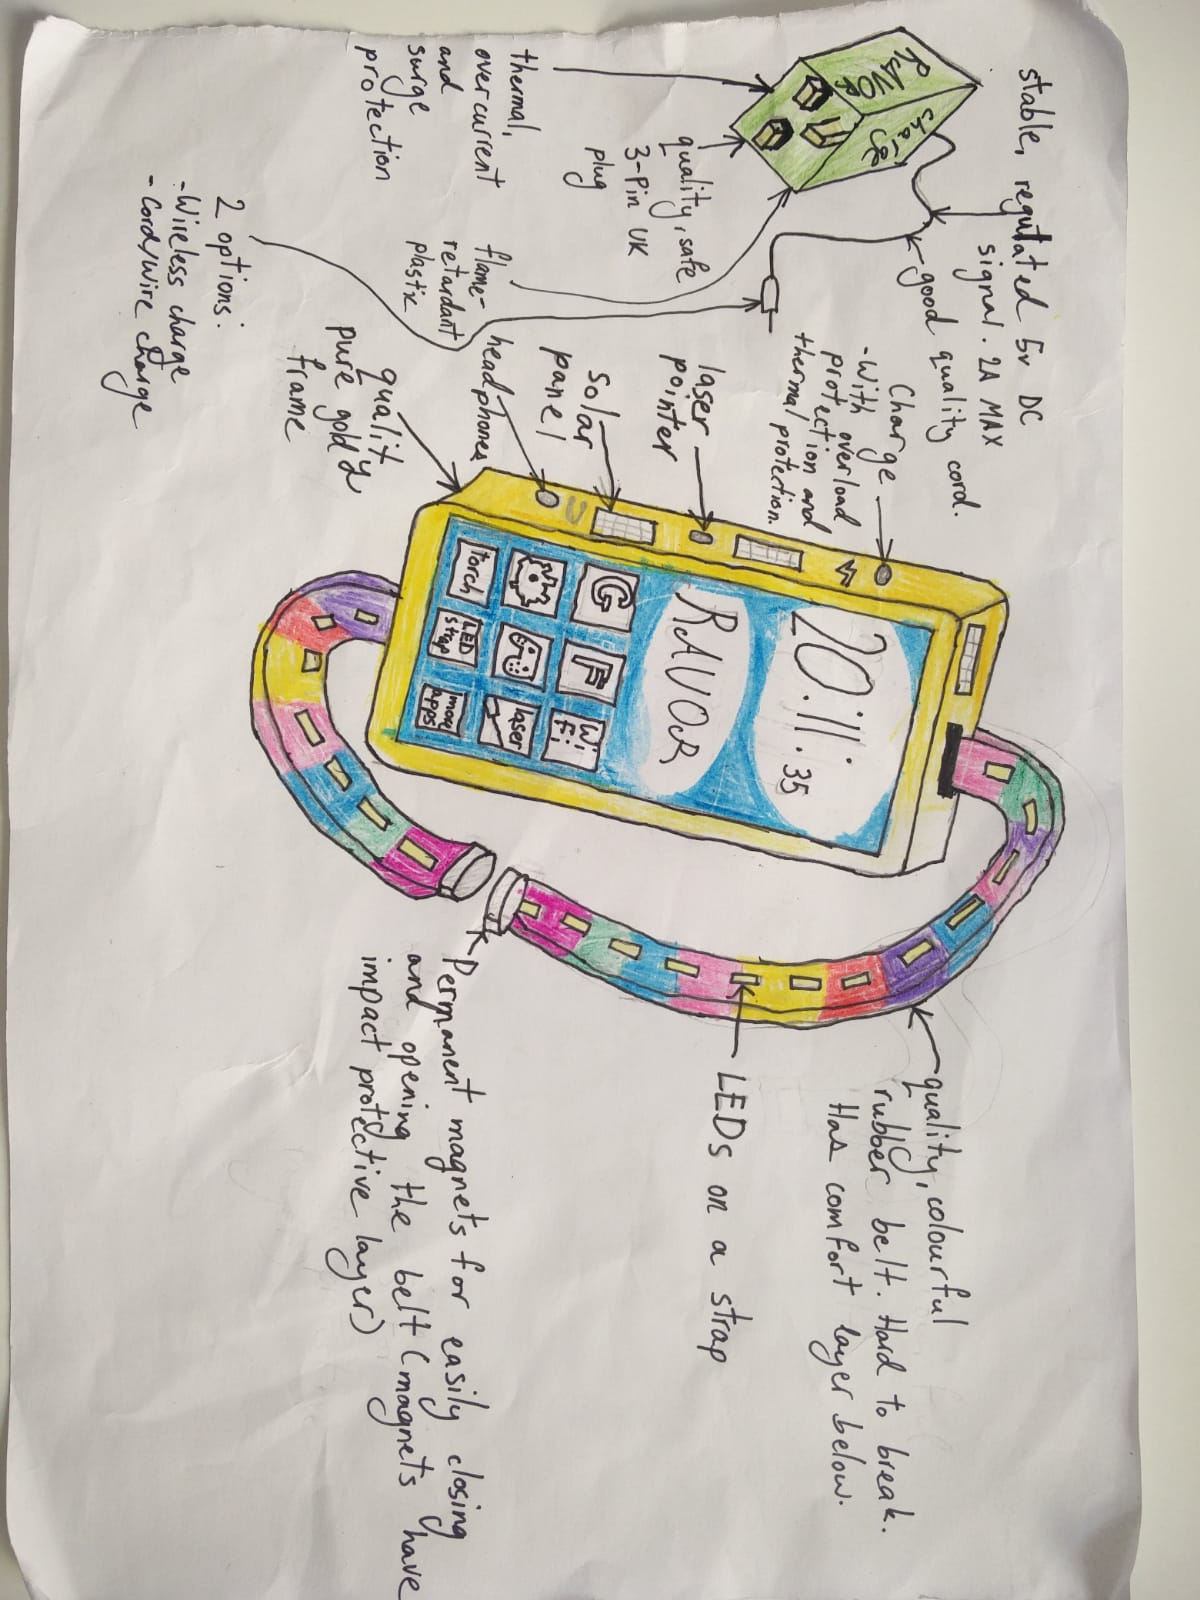 stable, regulated 5v DC
signal. 2A MAX
good quality cord.
RAVOR
charge
thermal,
overcurrent
and
surge
protection
quality, safe
3-Pin UK
plug
flame-
retardant
plastic
2 options:
- Wireless charge
- Cord/wire charge
Charge
- With overload
protection and
thermal protection.
laser
pointer
solar
panel
headphones
quality
pure gold
frame
20.11.35
RAVOR
G
F
Wi
Fi
laser
torch
LED
strap
more
apps
quality, colourful
rubber belt. Hard to break.
Has comfort layer below.
LEDs on a strap
Permanent magnets for easily closing
and opening the belt (magnets have
impact protective layer)